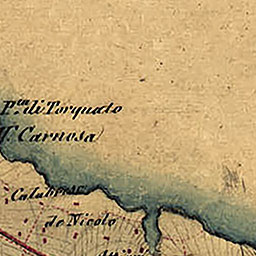 P.ta di Torquato
V. Carnosa)
Calabrese
de Nicolo